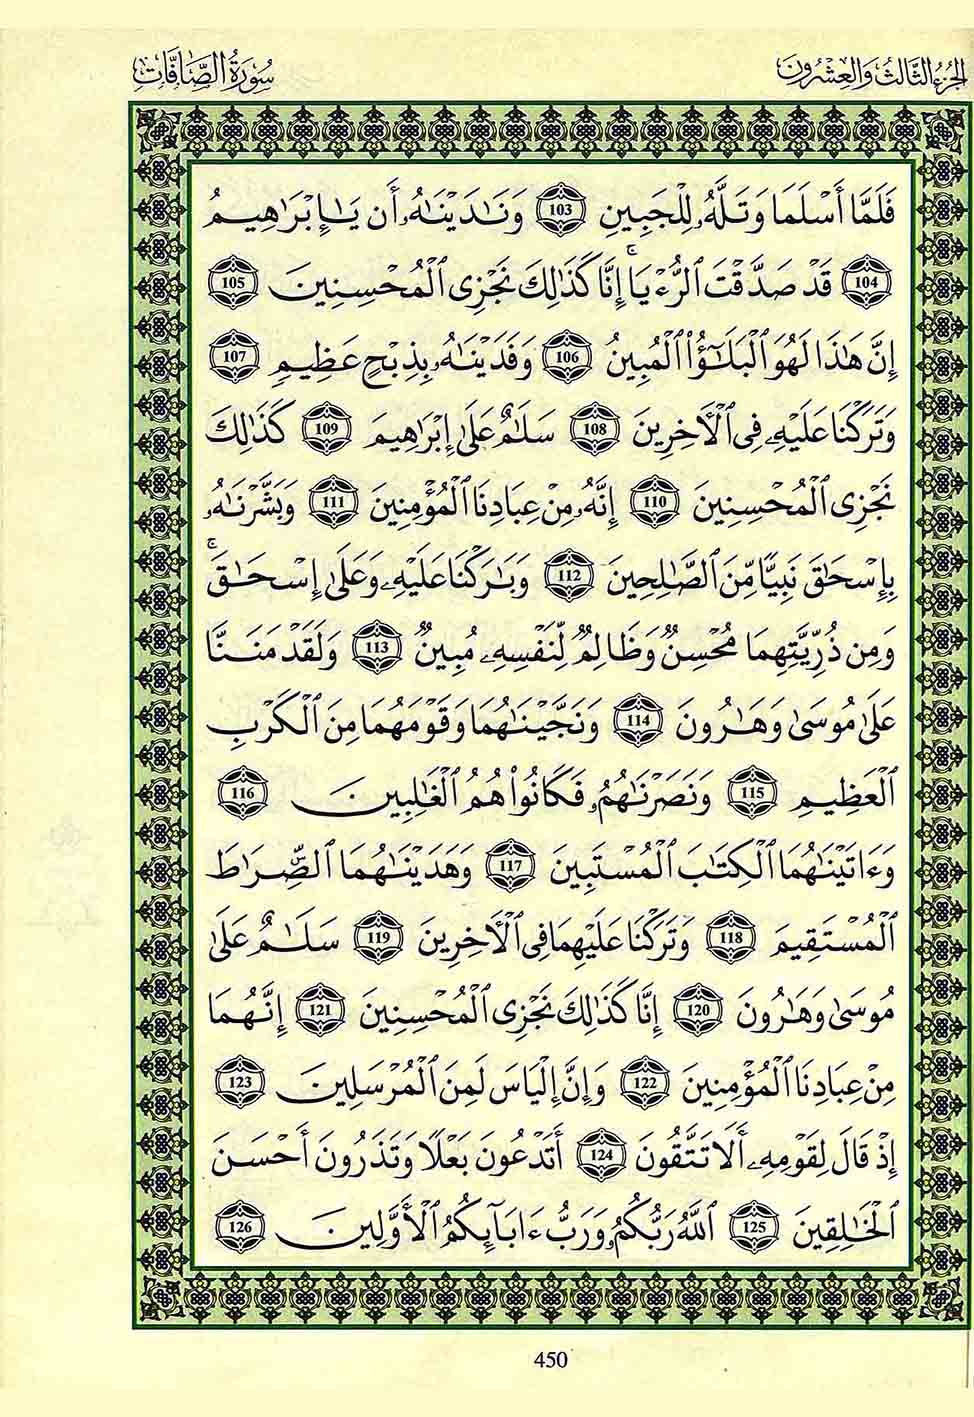 الجزء الثالث والعشرون
سُورَةُ الصَّافَّات
فَلَمَّا أَسْلَمَا وَتَلَّهُۥ لِلْجَبِينِ 103 وَنَٰدَيْنَٰهُ أَن يَٰٓإِبْرَٰهِيمُ
104 قَدْ صَدَّقْتَ ٱلرُّءْيَآ ۚ إِنَّا كَذَٰلِكَ نَجْزِى ٱلْمُحْسِنِينَ 105
إِنَّ هَٰذَا لَهُوَ ٱلْبَلَٰٓؤُا۟ ٱلْمُبِينُ 106 وَفَدَيْنَٰهُ بِذِبْحٍ عَظِيمٍ 107
وَتَرَكْنَا عَلَيْهِ فِى ٱلْءَاخِرِينَ 108 سَلَٰمٌ عَلَىٰٓ إِبْرَٰهِيمَ 109 كَذَٰلِكَ
نَجْزِى ٱلْمُحْسِنِينَ 110 إِنَّهُۥ مِنْ عِبَادِنَا ٱلْمُؤْمِنِينَ 111 وَبَشَّرْنَٰهُ
بِإِسْحَٰقَ نَبِيًّا مِّنَ ٱلصَّٰلِحِينَ 112 وَبَٰرَكْنَا عَلَيْهِ وَعَلَىٰٓ إِسْحَٰقَ ۚ
وَمِن ذُرِّيَّتِهِمَا مُحْسِنٌ وَظَالِمٌ لِّنَفْسِهِۦ مُبِينٌ 113 وَلَقَدْ مَنَنَّا
عَلَىٰ مُوسَىٰ وَهَٰرُونَ 114 وَنَجَّيْنَٰهُمَا وَقَوْمَهُمَا مِنَ ٱلْكَرْبِ
ٱلْعَظِيمِ 115 وَنَصَرْنَٰهُمْ فَكَانُوا۟ هُمُ ٱلْغَٰلِبِينَ 116
وَءَاتَيْنَٰهُمَا ٱلْكِتَٰبَ ٱلْمُسْتَبِينَ 117 وَهَدَيْنَٰهُمَا ٱلصِّرَٰطَ
ٱلْمُسْتَقِيمَ 118 وَتَرَكْنَا عَلَيْهِمَا فِى ٱلْءَاخِرِينَ 119 سَلَٰمٌ عَلَىٰ
مُوسَىٰ وَهَٰرُونَ 120 إِنَّا كَذَٰلِكَ نَجْزِى ٱلْمُحْسِنِينَ 121 إِنَّهُمَا
مِنْ عِبَادِنَا ٱلْمُؤْمِنِينَ 122 وَإِنَّ إِلْيَاسَ لَمِنَ ٱلْمُرْسَلِينَ 123
إِذْ قَالَ لِقَوْمِهِۦٓ أَلَا تَتَّقُونَ 124 أَتَدْعُونَ بَعْلًا وَتَذَرُونَ أَحْسَنَ
ٱلْخَٰلِقِينَ 125 ٱللَّهَ رَبَّكُمْ وَرَبَّ ءَابَآئِكُمُ ٱلْأَوَّلِينَ 126
450